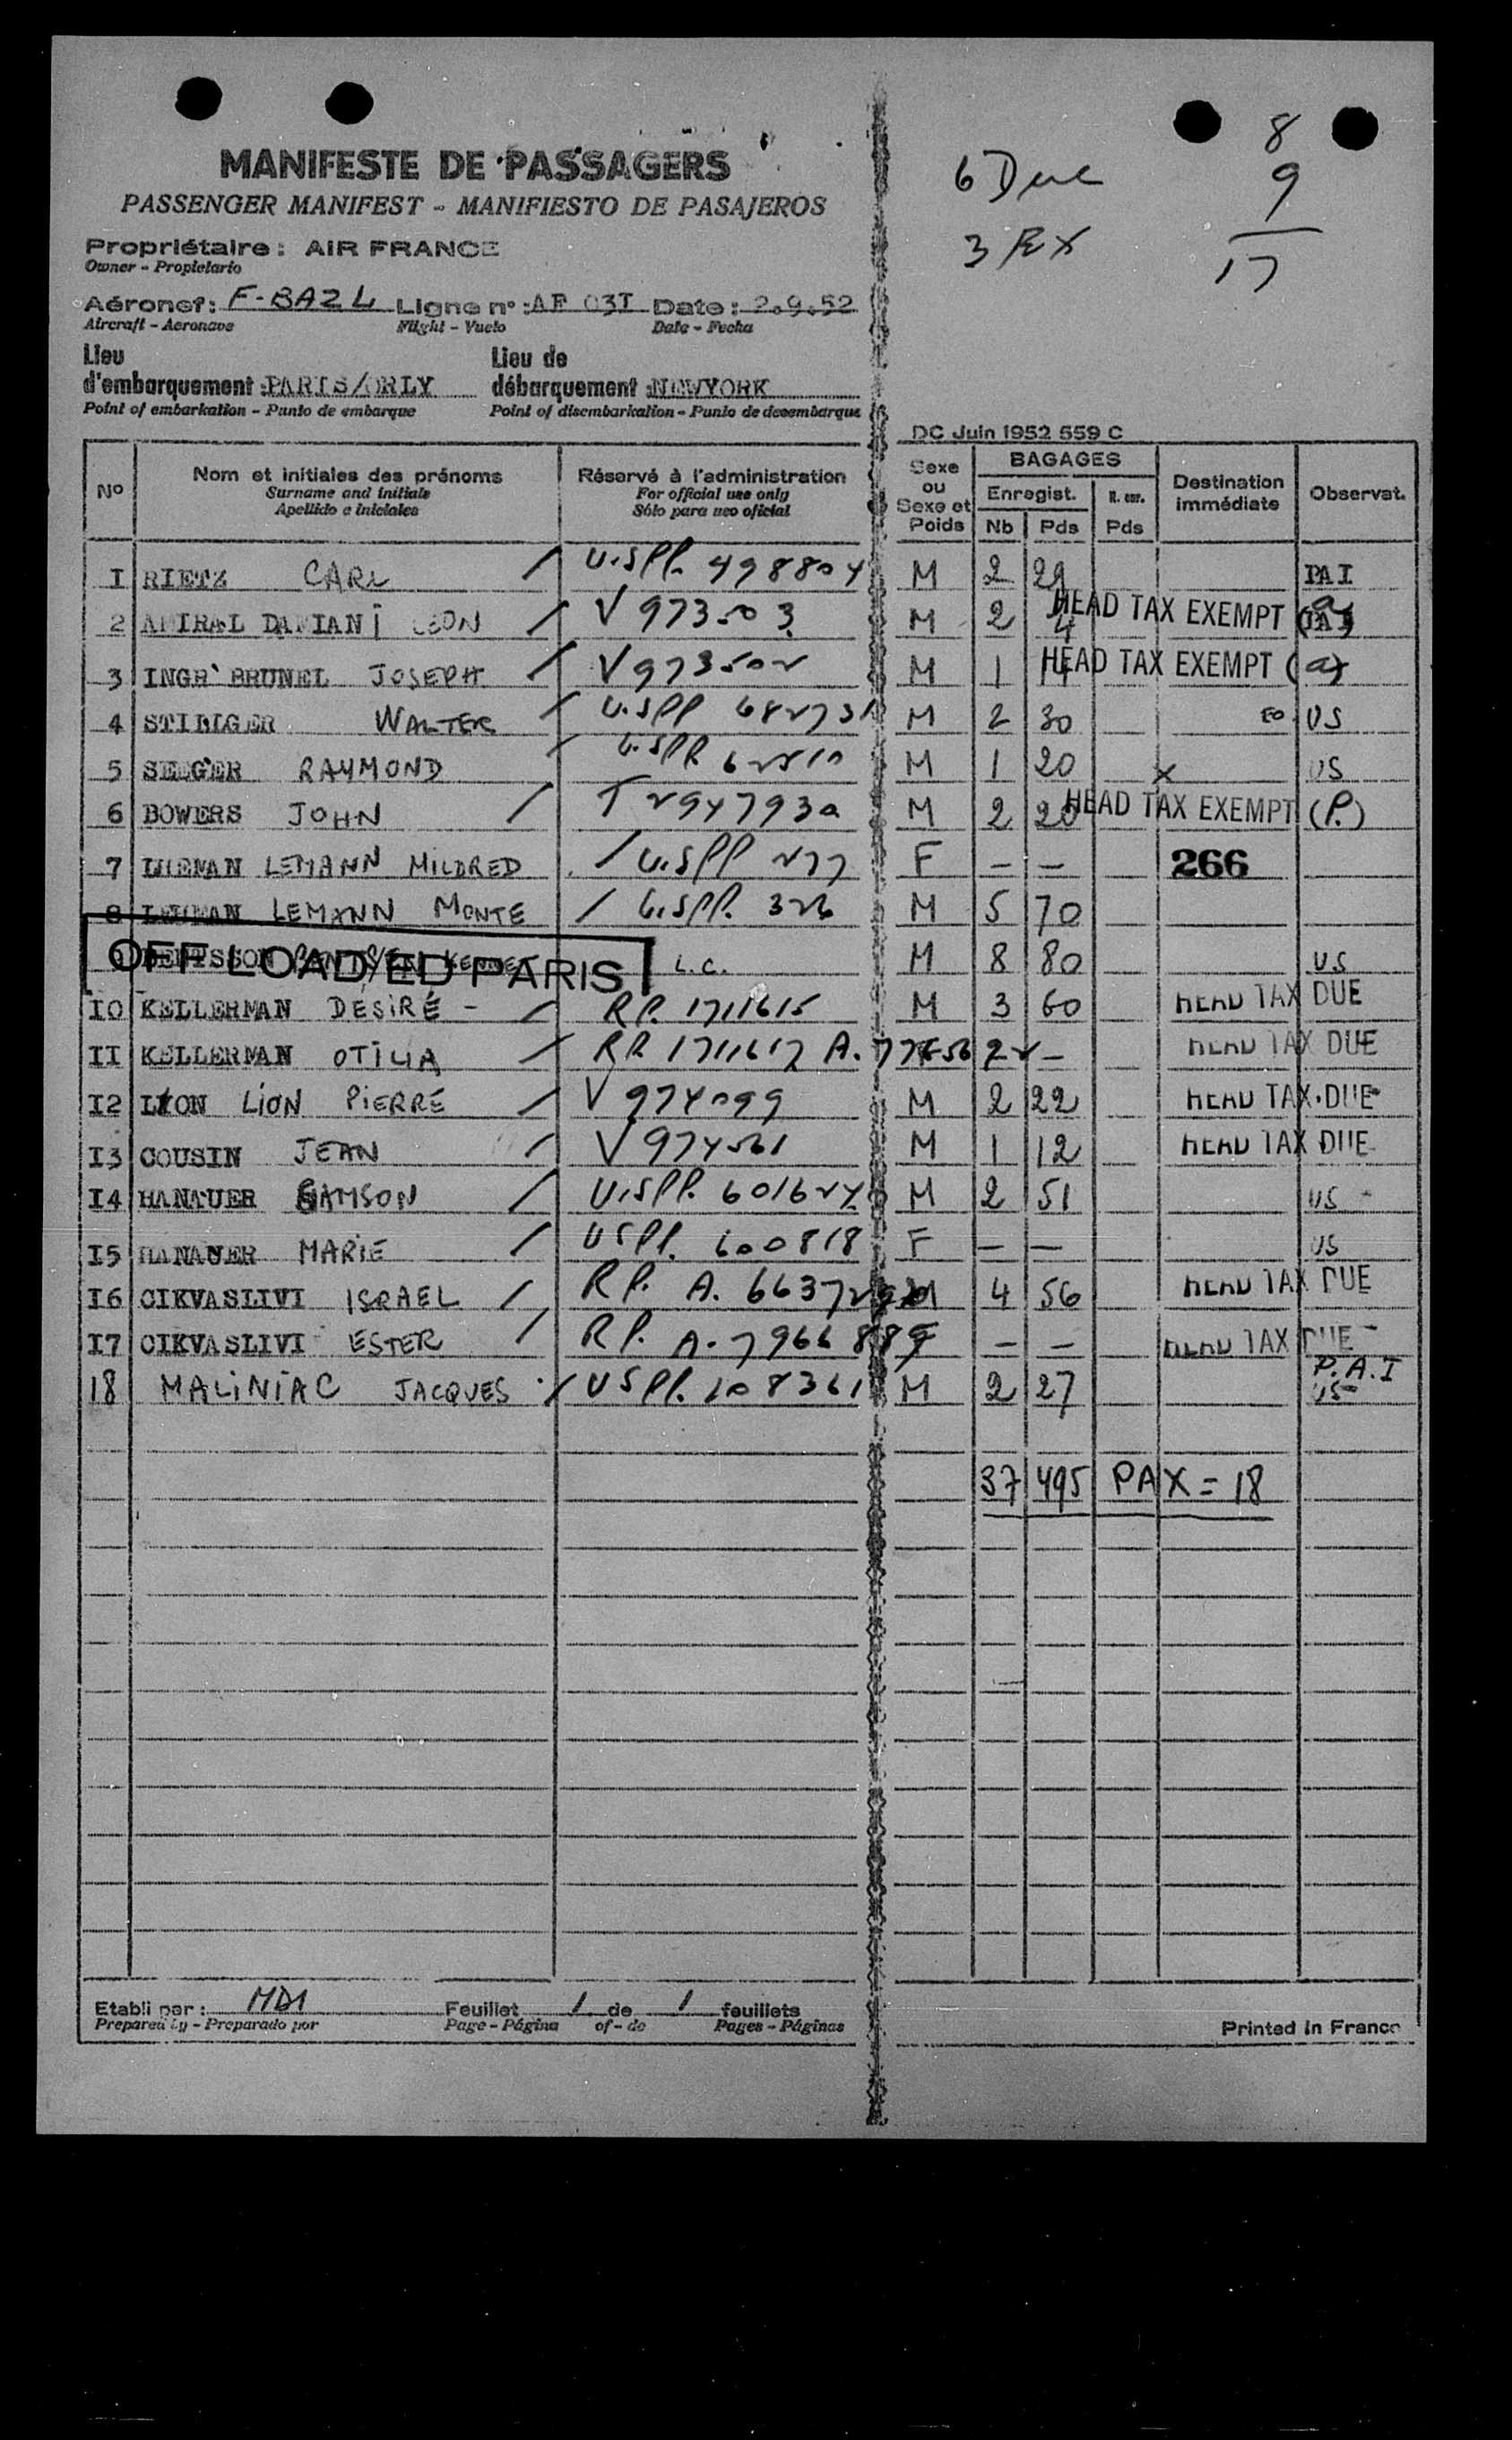 8
6 Due 9
3 EX 17
MANIFESTE DE PASSAGERS
PASSENGER MANIFEST - MANIFIESTO DE PASAJEROS
Propriétaire : AIR FRANCE
Owner - Propietario
Aéronef : F-BAZL Ligne n° : AF 03I Date : 2.9.52
Aircraft - Aeronave Flight - Vuelo Date - Fecha
Lieu d'embarquement : PARIS/ORLY Lieu de débarquement : NEWYORK
Point of embarkation - Punto de embarque Point of disembarkation - Punto de desembarque
DC Juin 1952 559 C
N° Nom et initiales des prénoms Réservé à l'administration Sexe ou Sexe et Poids BAGAGES Destination immédiate Observat.
Surname and initials For official use only Enregist. R. cor.
Apellido e iniciales Sólo para uso oficial Nb Pds Pds
I RIETZ CARL / U.S PP. 498804 M 2 29 PAI
2 AMIRAL DAMIANI LEON / V 973503 M 2 HEAD TAX EXEMPT (a)
3 INGR BRUNEL JOSEPH / V 973502 M 1 14 HEAD TAX EXEMPT (a)
4 STILLGER WALTER / U.S PP 682731 M 2 30 US
5 SEEGER RAYMOND / U.S PP M 1 20 X US
6 BOWERS JOHN / T 2947930 M 2 20 HEAD TAX EXEMPT (P.)
7 LEMANN MILDRED / U.S PP 277 F — — 266
8 LEMANN MONTE / U.S PP. 326 M 5 70
OFF LOADED PARIS L.C. M 8 80 US
IO KELLERMAN DESIRÉ - / R.P. 1711615 M 3 60 HEAD TAX DUE
II KELLERMAN OTILIA / R.P. 1711617 A. — HEAD TAX DUE
I2 LION PIERRE / V 974099 M 2 22 HEAD TAX DUE
I3 COUSIN JEAN / V 974561 M 1 12 HEAD TAX DUE
I4 HANAUER SAMSON / U.S PP. 601624 M 2 51 US -
I5 HANAUER MARIE / US PP. 600818 F — — US
I6 CIKVASLIVI ISRAEL / R P. A. M 4 56 HEAD TAX DUE
I7 CIKVASLIVI ESTER / R P. A. 7966889 F — — HEAD TAX DUE -
18 MALINIAC JACQUES / US PP. 108361 M 2 27 P.A.I US
37 495 PAX = 18
Etabli par : Feuillet 1 de 1 feuillets
Prepared by - Preparado por Page - Página of - de Pages - Páginas
Printed in France